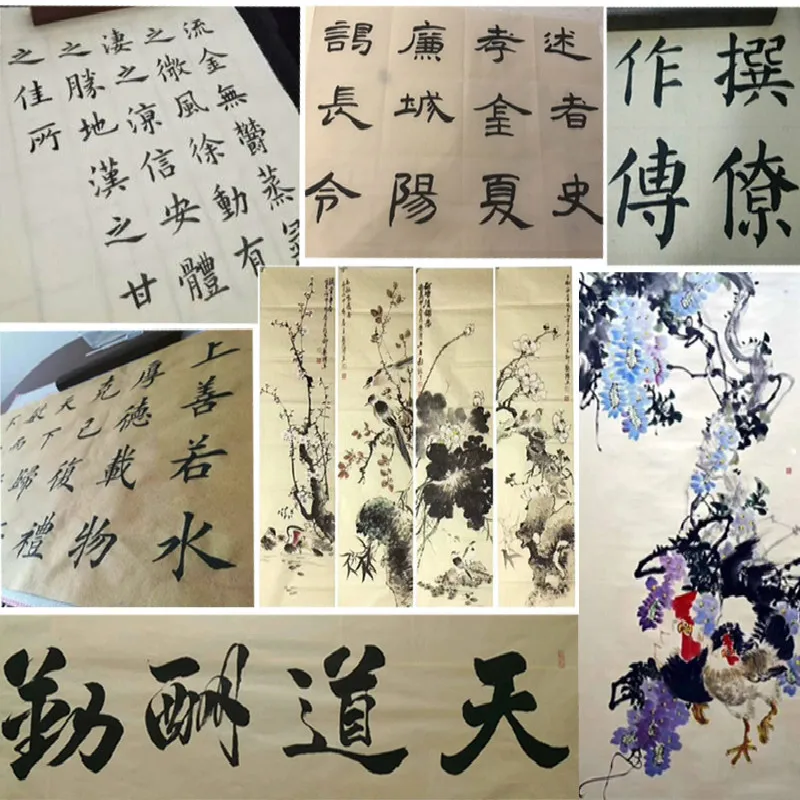 流金無鬱蒸
之微風徐動有
淒之涼信安體
之勝地漢之甘
之佳所
述孝廉謁
者金城長
史夏陽令
撰僚
作傅
上善若水
厚德載物
克己復禮
天下歸
天道酬勤